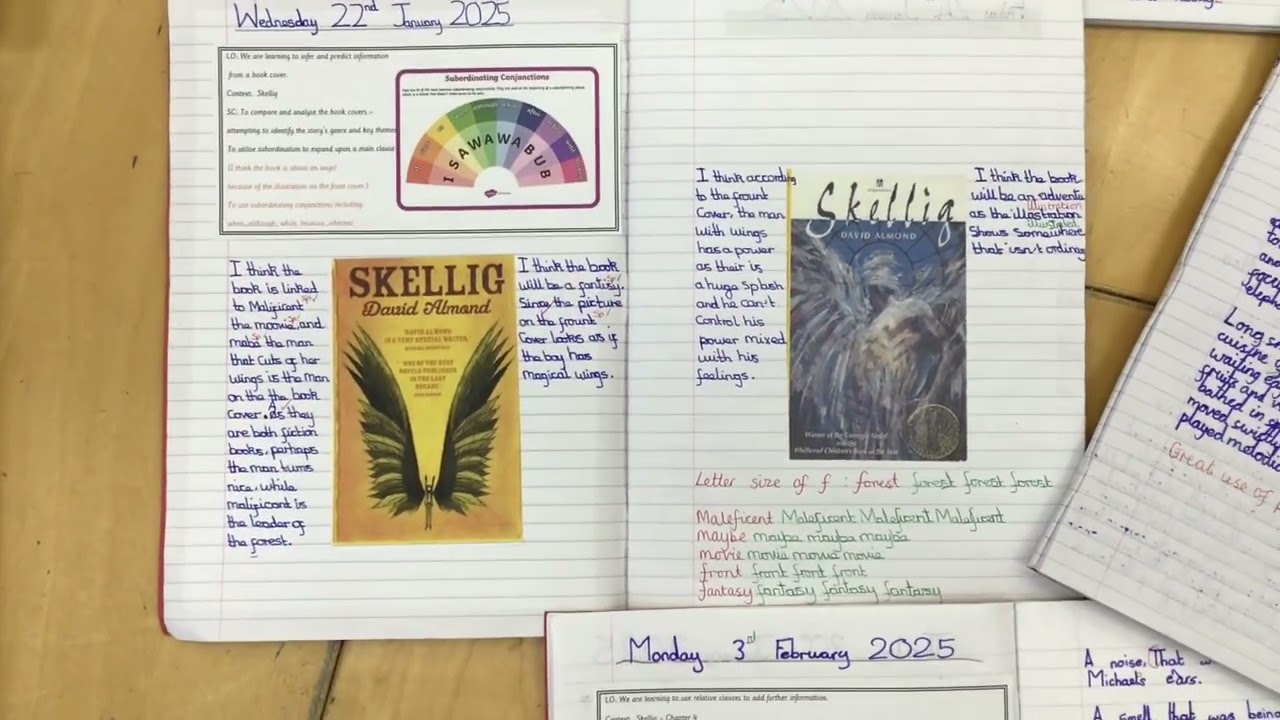 Wednesday 22nd January 2025
LO: We are learning to infer and predict information
from a book cover.
Context: Skellig
SC: To compare and analyse the book covers -
attempting to identify the story's genre and key themes
To utilise subordination to expand upon a main clause
(I think the book is about an angel
because of the illustration on the front cover.)
To use subordinating conjunctions including
when, although, while, because, whereas
Subordinating Conjunctions
I SAW A WABUB
I think the
book is linked
to Malificant
the moovie, and
mabe the man
that cuts of her
wings is the man
on the the book
cover. As they
are both fiction
books, perhaps
the man turns
nice, while
malificant is
the leader of
the forest.
SKELLIG
David Almond
'DAVID ALMOND
IS A VERY SPECIAL WRITER.'
'ONE OF THE BEST
NOVELS PUBLISHED
IN THE LAST
DECADE.'
I think the book
will be a fantisy.
Since the picture
on the frount
Cover looks as if
the boy has
magical wings.
I think according
to the frount
Cover, the man
with wings
has a power
as their is
a huge splash
and he can't
control his
power mixed
with his
feelings.
Skellig
DAVID ALMOND
Winner of the Carnegie Medal
and the
Whitbread Children's Book of the Year
I think the book
will be an adventu
illustration
as the illastration
illustrated
Shows Somewhere
that isn't ordina
Letter size of f : forest forest forest forest
Maleficent Maleficent Maleficent Maleficent
maybe maybe maybe maybe
movie movie movie movie
front front front front
fantasy fantasy fantasy fantasy
Monday 3rd February 2025
LO: We are learning to use relative clauses to add further information.
Context: Skellig - Chapter 4
A noise, That w
Michael's ears.
A smell that was being
Long s
cuisine
waiting
fruits and
bathed in s
moved swiftly
played melodi
Great use of